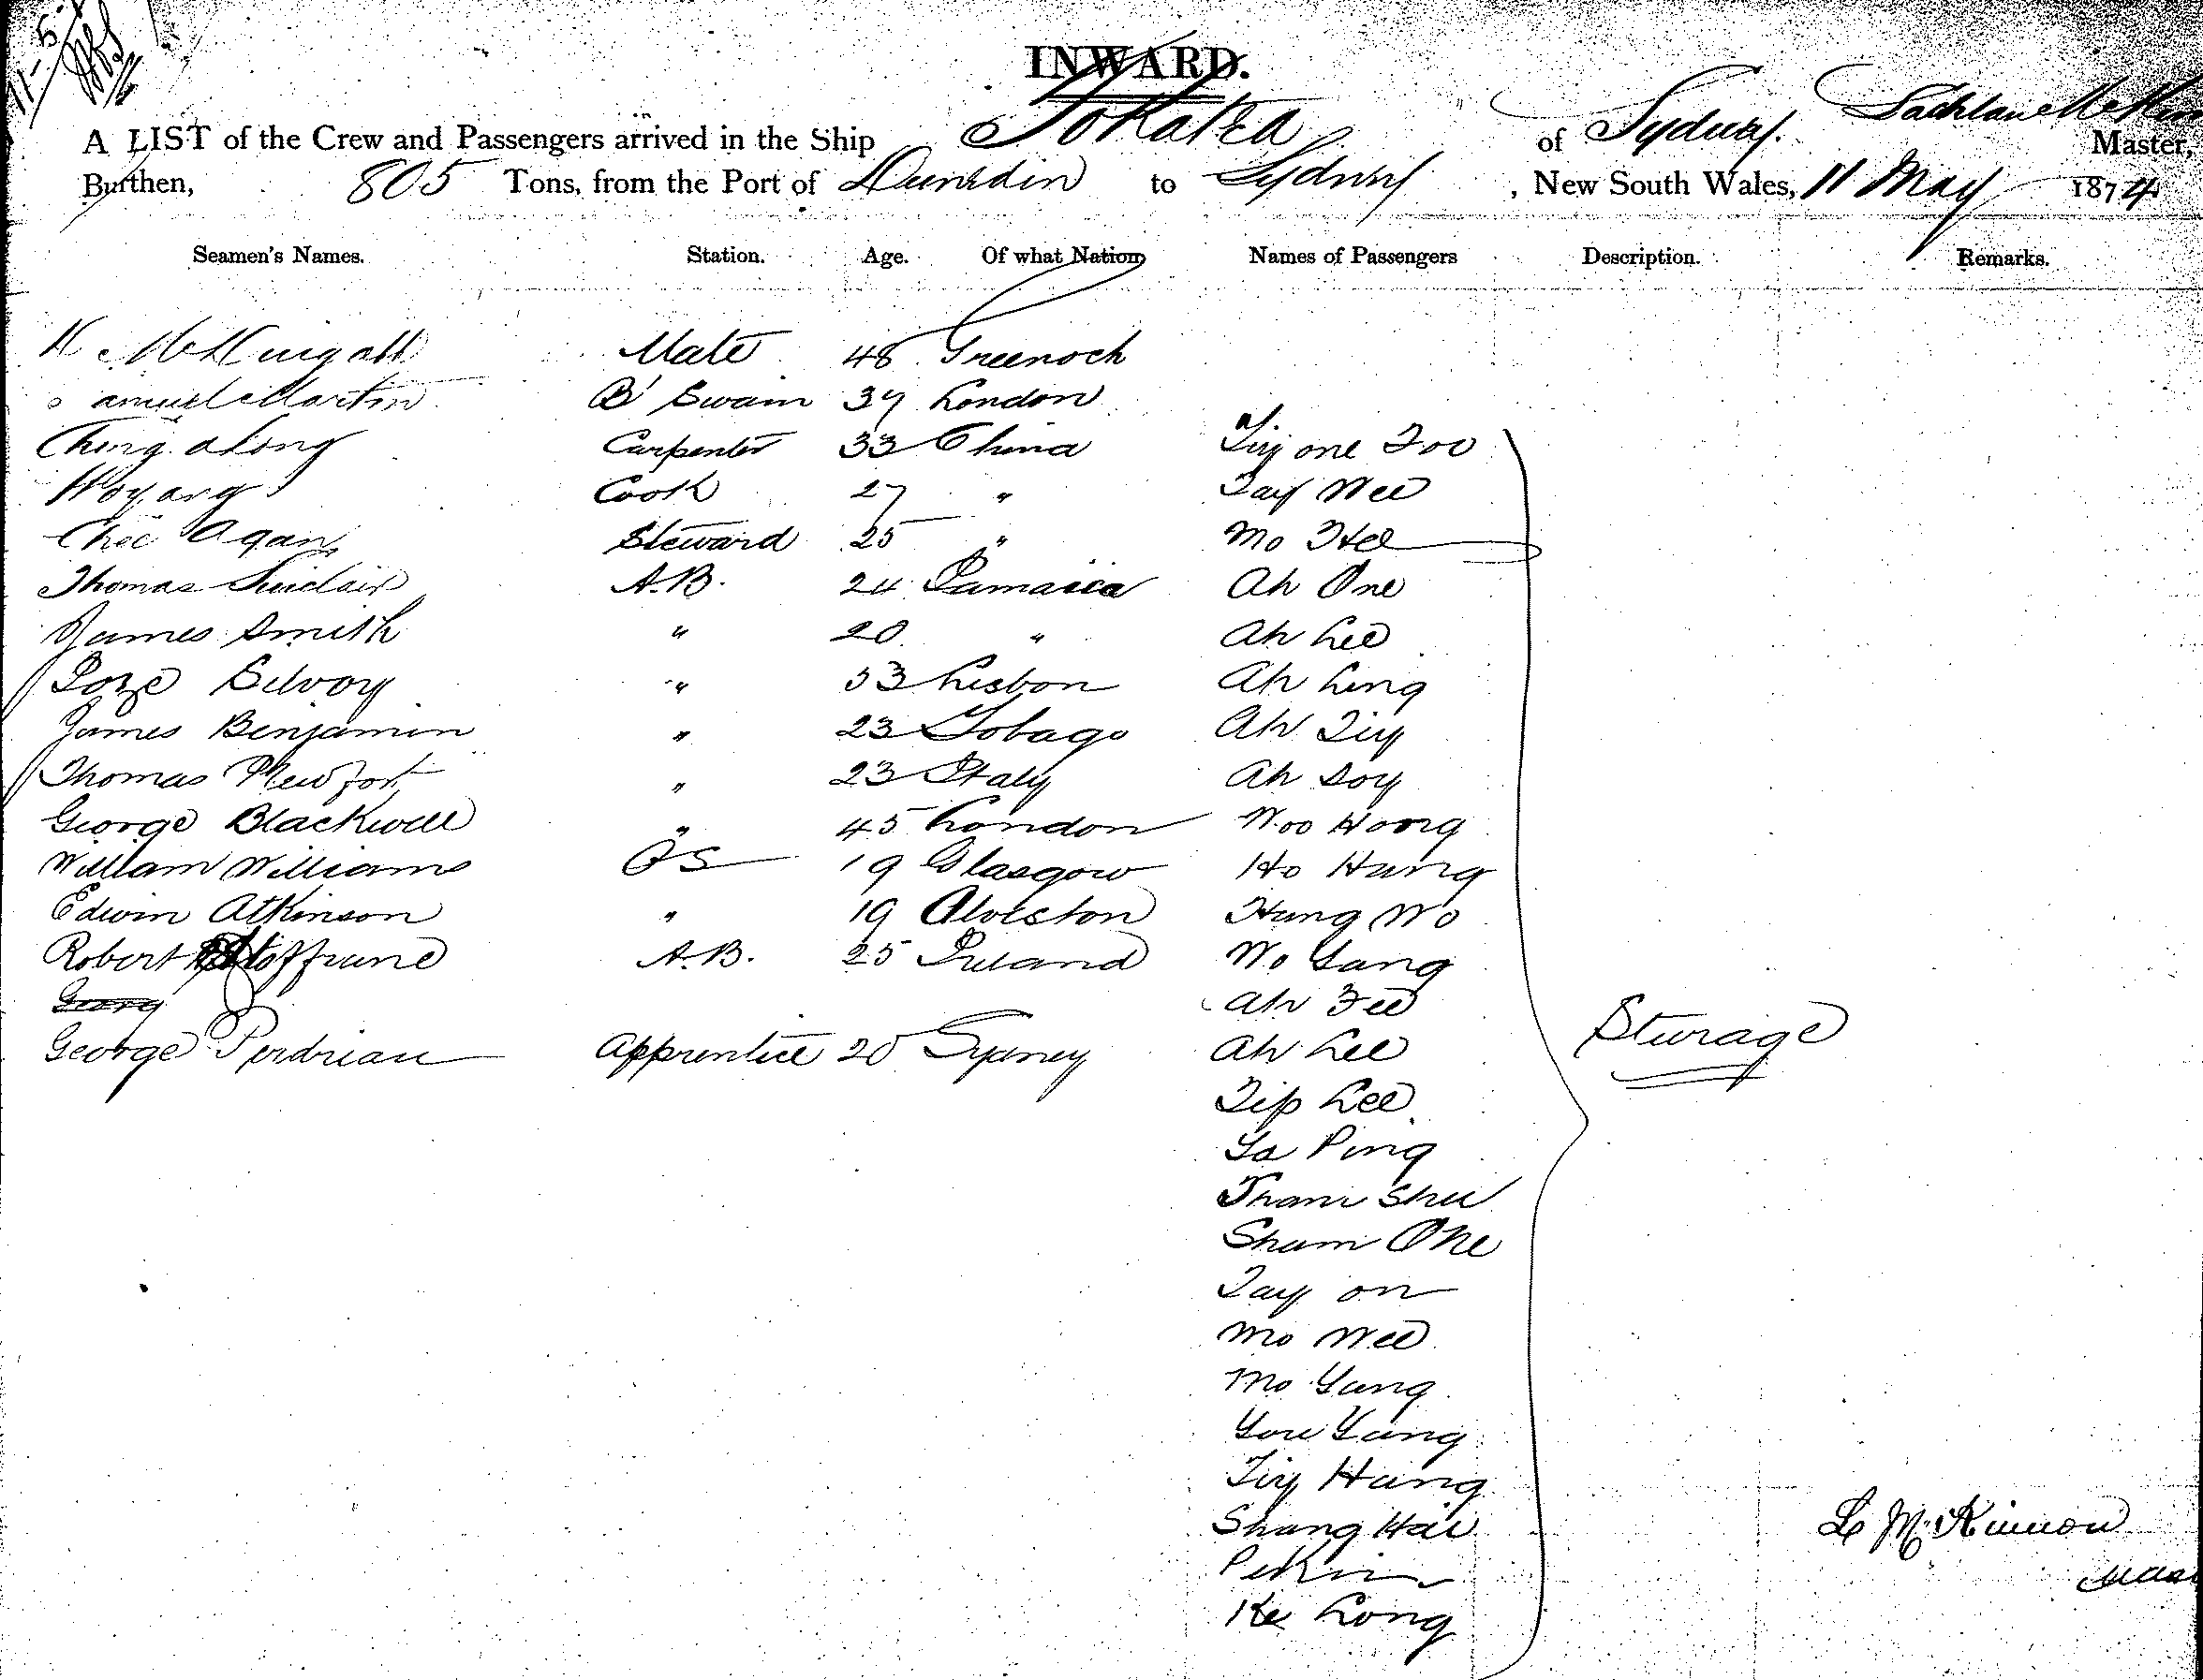 INWARD.
A LIST of the Crew and Passengers arrived in the Ship of Sydney. Lachlan Master,
Burthen, 805 Tons, from the Port of Dunedin to Sydney, New South Wales, 11 May 1874
Seamen's Names. Station. Age. Of what Nation Names of Passengers Description. Remarks.
Mate 48 Greenoch
amuel Martin B' Swain 37 London
Ching along Carpenter 33 China one Foo
Hoyang Cook 27 " Tay Wee
Chee Agan Steward 25 " Mo Hee
Thomas Sinclair A.B. 24 Jamaica Ah One
James Smith " 20 " Ah Lee
Joze Silvoy " 33 Lisbon Ah Ling
James Benjamin " 23 Tobago Ah Tiy
Thomas " 23 Italy Ah Soy
George Blackwell " 45 London Woo Hoong
William Williams OS 19 Glasgow Ho Hung
Edwin Atkinson " 19 Alveston Hung Wo
Robert A.B. 25 Ireland Wo Sang
Georg Ah Fee
George Perdriau Apprentice 20 Sydney Ah Lee
Tip Lee
Ya Ping
Sham One
Tay on
Mo Wee
Mo Yung
You Yung
Tiy Hung
Shang Hai
Pekin
Ke Long
Sturage
L McKinnon